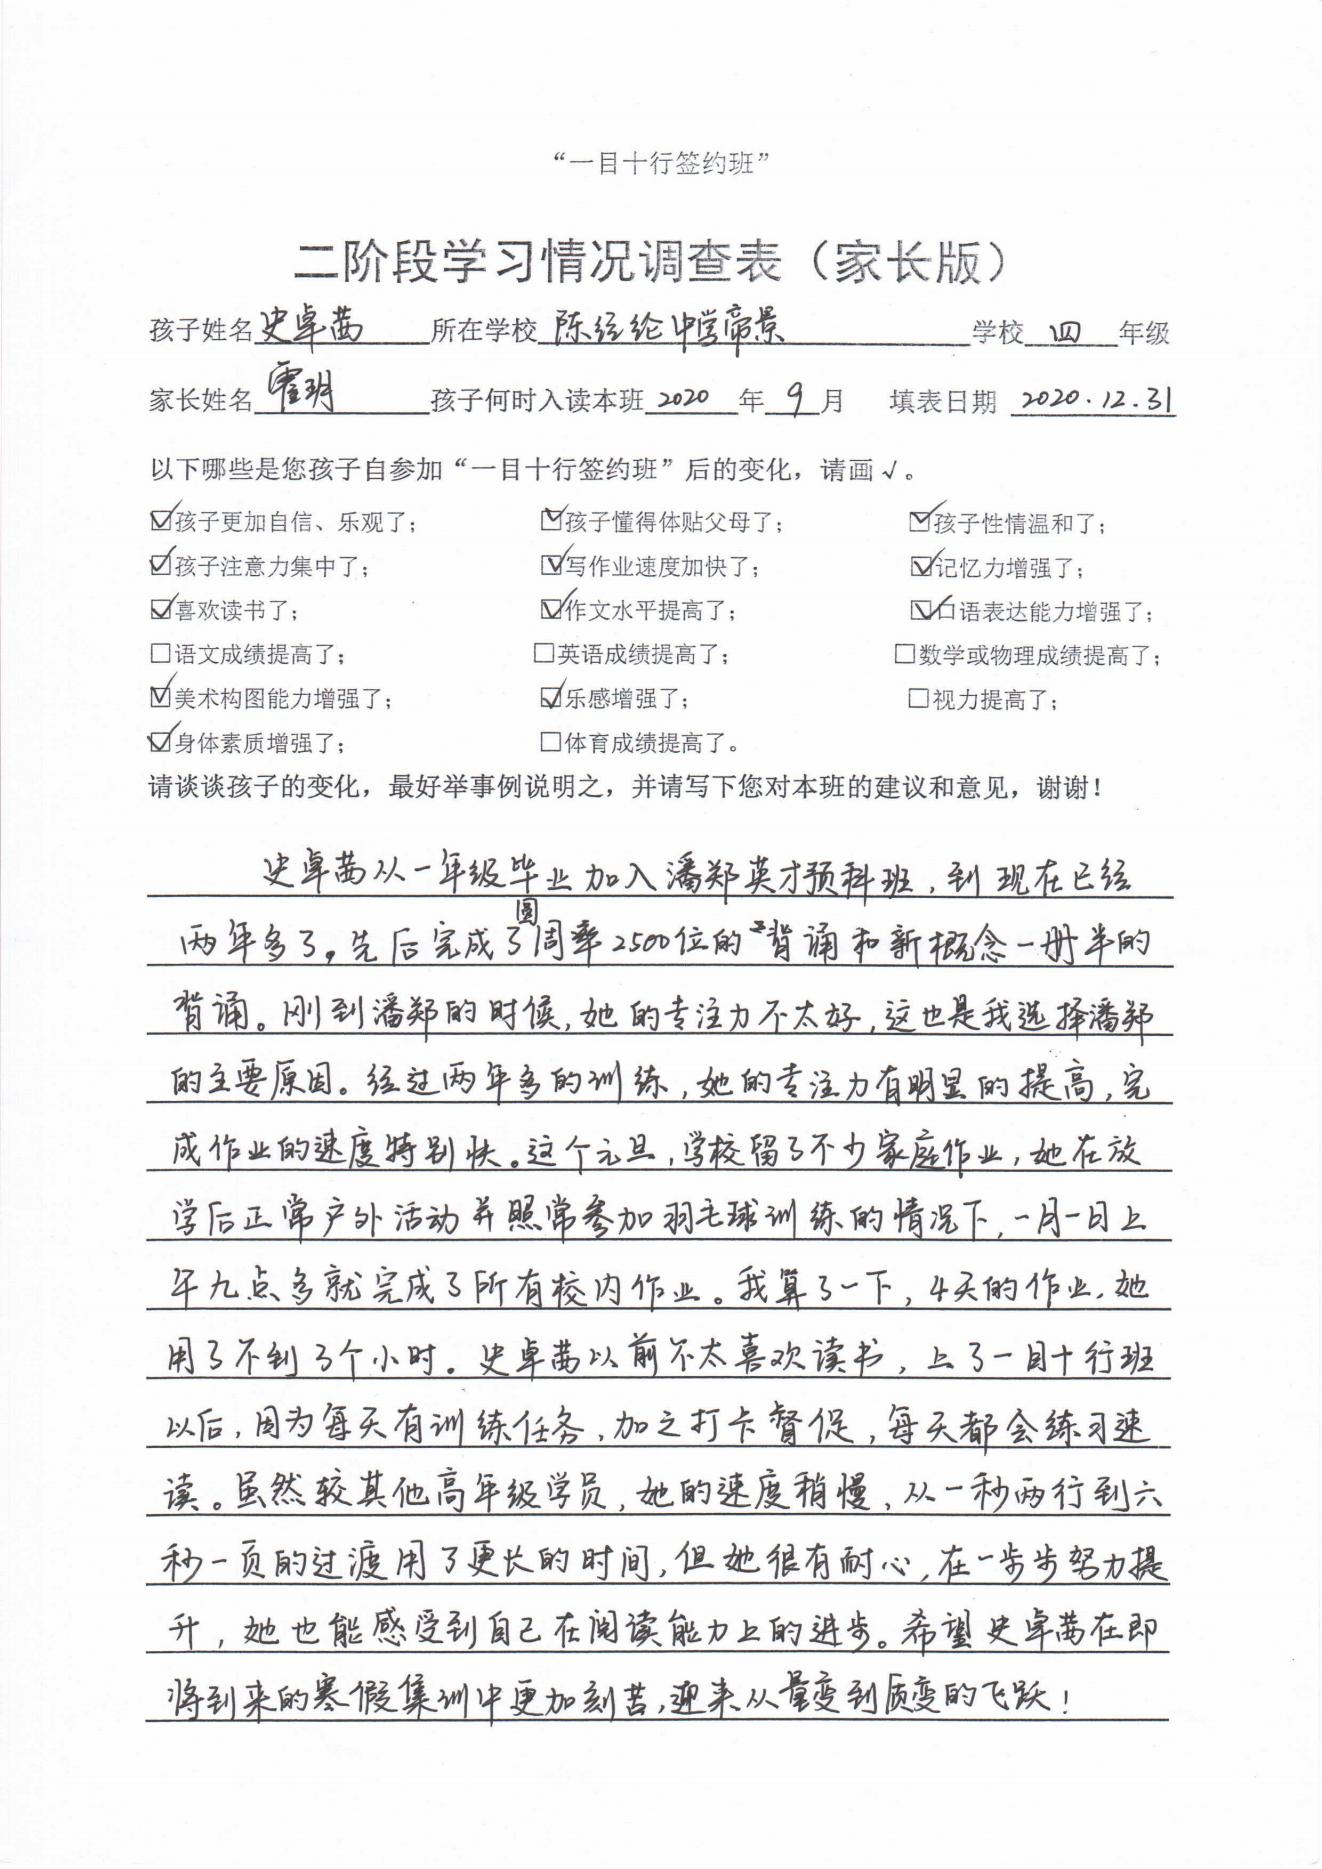 “一目十行签约班”
二阶段学习情况调查表（家长版）
孩子姓名 史卓茜 所在学校 陈经纶中学帝景 学校 四 年级
家长姓名 霍玥 孩子何时入读本班 2020 年 9 月 填表日期 2020.12.31
以下哪些是您孩子自参加“一目十行签约班”后的变化，请画√。
☑孩子更加自信、乐观了； ☑孩子懂得体贴父母了； ☑孩子性情温和了；
☑孩子注意力集中了； ☑写作业速度加快了； ☑记忆力增强了；
☑喜欢读书了； ☑作文水平提高了； ☑口语表达能力增强了；
□语文成绩提高了； □英语成绩提高了； □数学或物理成绩提高了；
☑美术构图能力增强了； ☑乐感增强了； □视力提高了；
☑身体素质增强了； □体育成绩提高了。
请谈谈孩子的变化，最好举事例说明之，并请写下您对本班的建议和意见，谢谢！
史卓茜从一年级毕业加入潘郑英才预科班，到现在已经
两年多了。先后完成了圆周率2500位的背诵和新概念一册半的
背诵。刚到潘郑的时候，她的专注力不太好，这也是我选择潘郑
的主要原因。经过两年多的训练，她的专注力有明显的提高，完
成作业的速度特别快。这个元旦，学校留了不少家庭作业，她在放
学后正常户外活动并照常参加羽毛球训练的情况下，一月一日上
午九点多就完成了所有校内作业。我算了一下，4天的作业，她
用了不到3个小时。史卓茜以前不太喜欢读书，上了一目十行班
以后，因为每天有训练任务，加之打卡督促，每天都会练习速
读。虽然较其他高年级学员，她的速度稍慢，从一秒两行到六
秒一页的过渡用了更长的时间，但她很有耐心，在一步步努力提
升，她也能感受到自己在阅读能力上的进步。希望史卓茜在即
将到来的寒假集训中更加刻苦，迎来从量变到质变的飞跃！